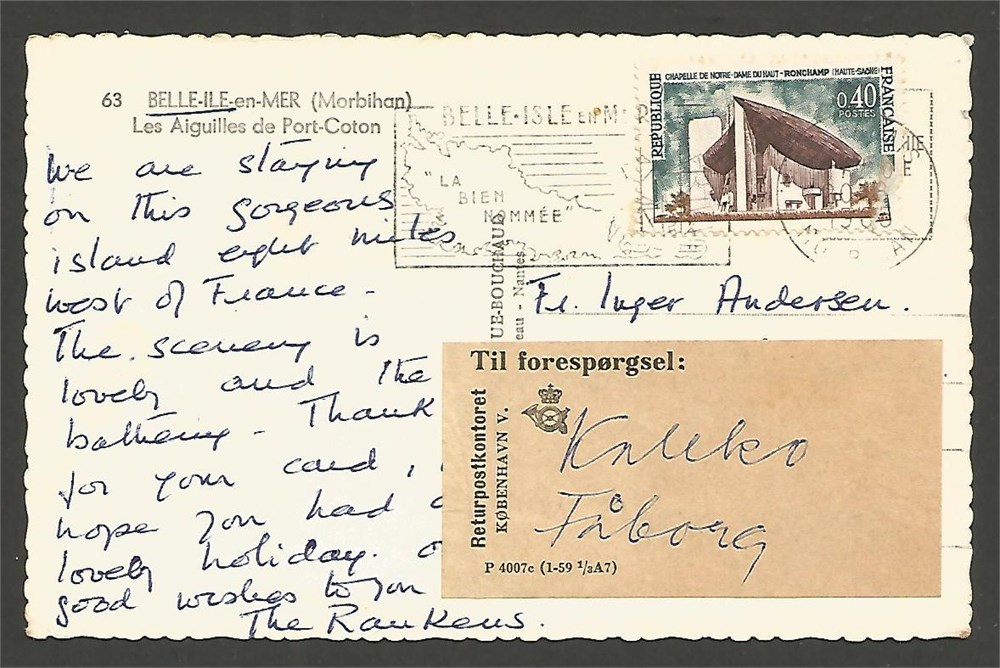 63 BELLE-ILE-en-MER (Morbihan)
Les Aiguilles de Port-Coton
We are staying
on this gorgeous
island eight miles
west of France -
The scenery is
lovely and the
bathing - Thank
for your card,
hope you had
lovely holiday.
good wishes to you
The Rankens.
BELLE-ISLE EN M R
"LA
BIEN
NOMMÉE"
CHAPELLE DE NOTRE-DAME DU HAUT-RONCHAMP (HAUTE-SAÔNE)
RÉPUBLIQUE
FRANÇAISE
0,40
POSTES
UE-BOUCHAUD
eau - Nantes
Fr. Inger Andersen.
Til forespørgsel:
Returpostkontoret
KØBENHAVN V.
Kaleko
Fåborg
P 4007c (1-59 1/3A7)